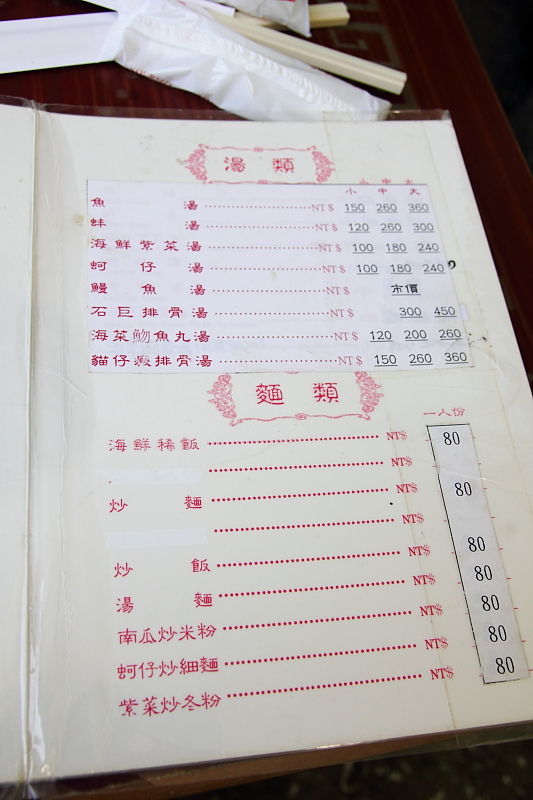 湯類
小 中 大
魚湯 NT$ 150 260 360
蚌湯 NT$ 120 260 300
海鮮紫菜湯 NT$ 100 180 240
蚵仔湯 NT$ 100 180 240
鰻魚湯 NT$ 市價
石巨排骨湯 NT$ 300 450
海菜魩魚丸湯 NT$ 120 200 260
貓仔癍排骨湯 NT$ 150 260 360
麵類
一人份
海鮮稀飯 NT$ 80
NT$
炒麵 NT$ 80
NT$
炒飯 NT$ 80
湯麵 NT$ 80
南瓜炒米粉 NT$ 80
蚵仔炒細麵 NT$ 80
紫菜炒冬粉 NT$ 80